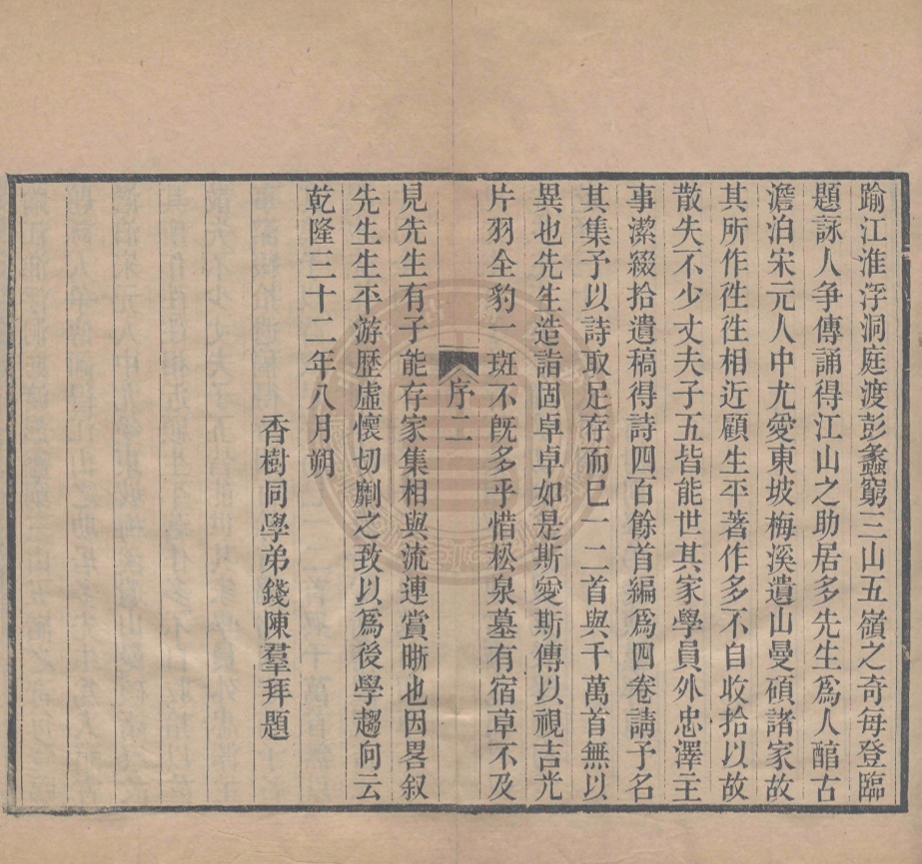 踰江淮浮洞庭渡彭蠡窮三山五嶺之奇每登臨
題詠人争傳誦得江山之助居多先生爲人醕古
澹泊宋元人中尤愛東坡梅溪遺山曼碩諸家故
其所作徃徃相近顧生平著作多不自收拾以故
散失不少丈夫子五皆能世其家學員外忠澤主
事潔綴拾遺稿得詩四百餘首編爲四卷請予名
其集予以詩取足存而巳一二首與千萬首無以
異也先生造詣固卓卓如是斯愛斯傳以視吉光
片羽全豹一斑不旣多乎惜松泉墓有宿草不及
序二
見先生有子能存家集相與流連賞晰也因畧叙
先生生平游歷虛懷切劘之致以爲後學趨向云
乾隆三十二年八月朔
香樹同學弟錢陳羣拜題